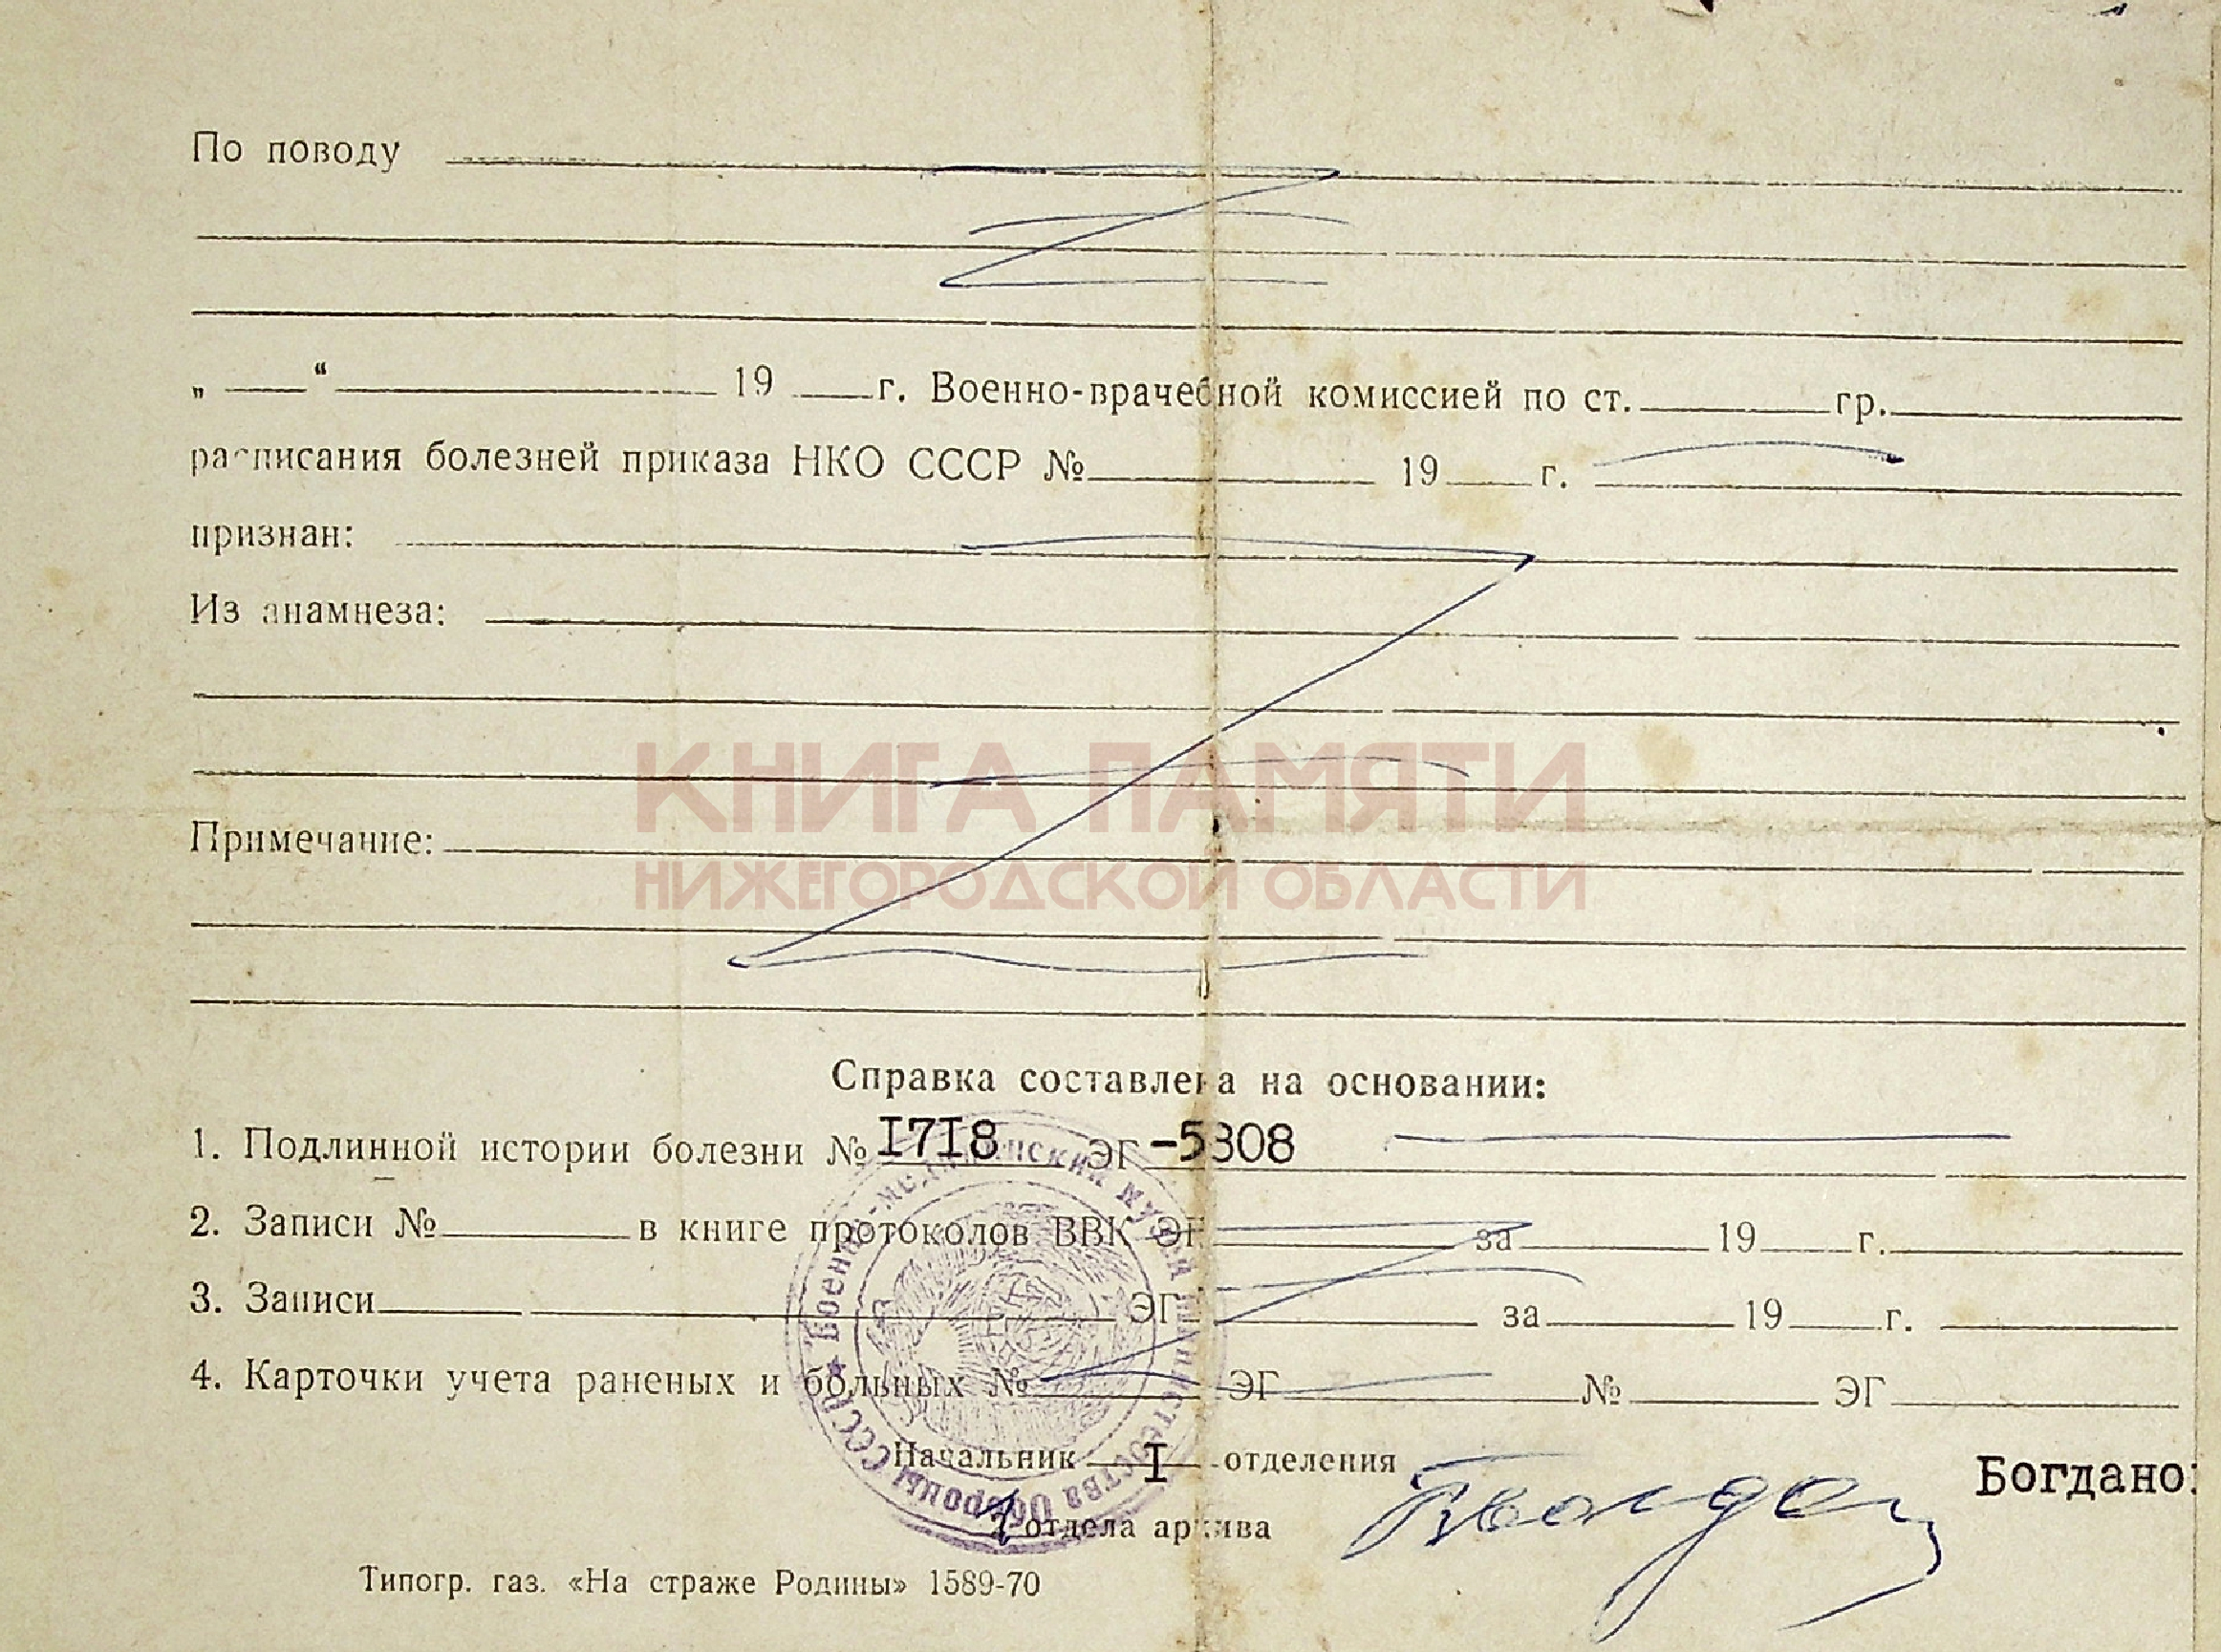 По поводу
„ “ 19 г. Военно-врачебной комиссией по ст. гр.
расписания болезней приказа НКО СССР № 19 г.
признан:
Из анамнеза:
КНИГА ПАМЯТИ
Примечание:
НИЖЕГОРОДСКОЙ ОБЛАСТИ
Справка составлена на основании:
1. Подлинной истории болезни № I7I8 ЭГ -5808
2. Записи № в книге протоколов ВВК ЭГ за 19 г.
3. Записи ЭГ за 19 г.
4. Карточки учета раненых и больных № ЭГ № ЭГ
Военно-медицинский музей Министерства Обороны СССР
Начальник I отделения
Богдано
отдела архива
Типогр. газ. «На страже Родины» 1589-70